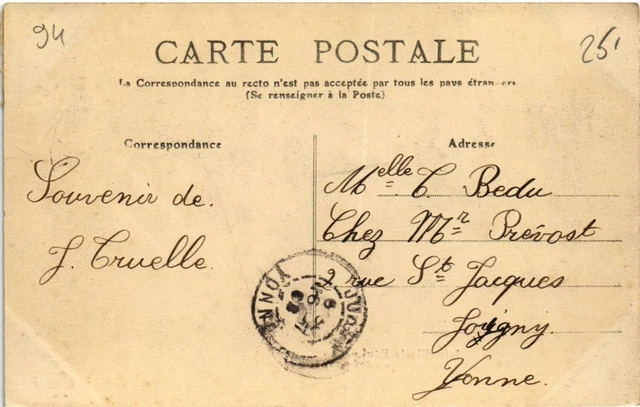 94
25
CARTE POSTALE
La Correspondance au recto n'est pas acceptée par tous les pays étrangers
(Se renseigner à la Poste)
Correspondance
Souvenir de.
J. Truelle.
Adresse
Melle C. Bedu
Chez Mr Prévost
2 rue St Jacques
Joigny
Yonne.
YONNE